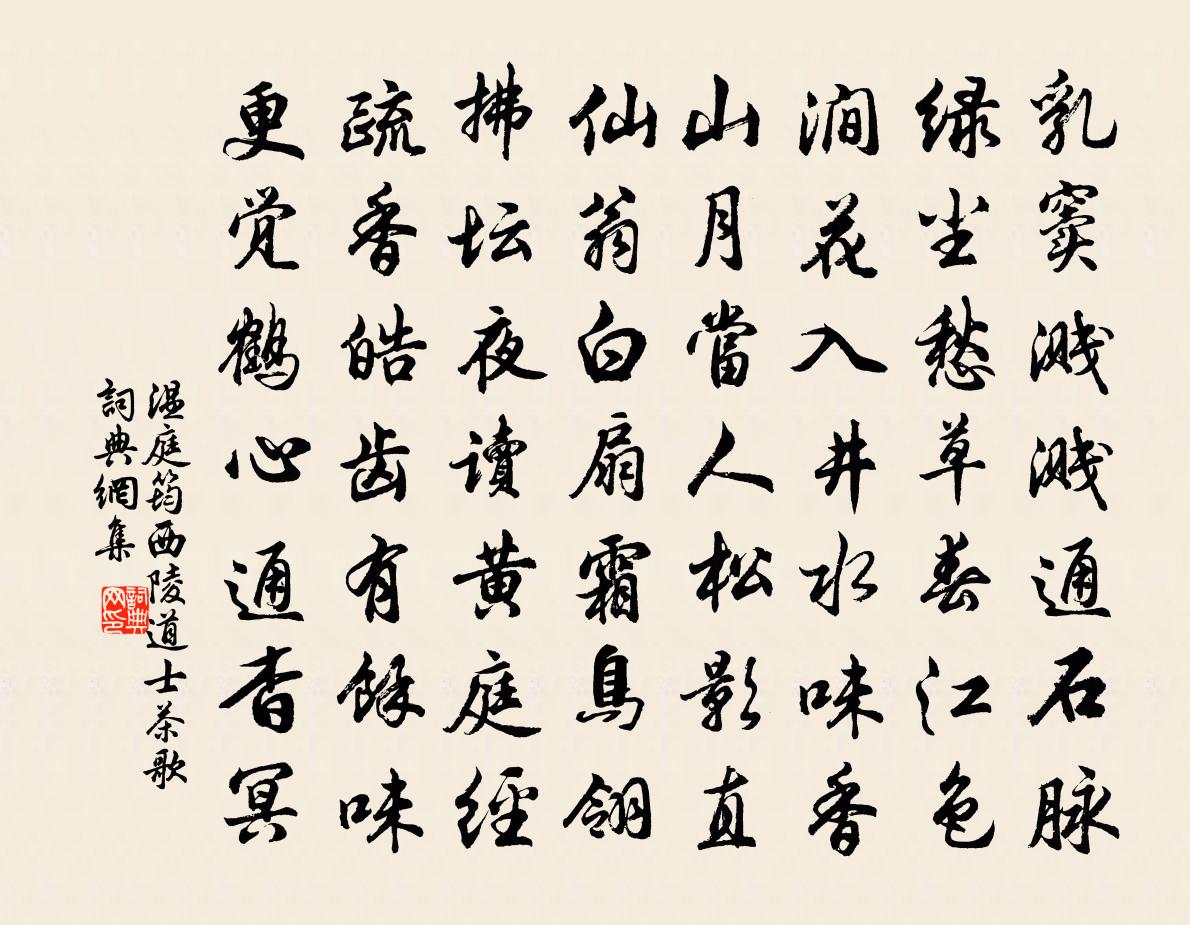 乳窦溅溅通石脉
绿尘愁草春江色
涧花入井水味香
山月當人松影直
仙翁白扇霜鳥翎
拂坛夜讀黄庭經
疏香皓齿有餘味
更觉鹤心通杳冥
温庭筠西陵道士茶歌
詞典網集
詞典网印